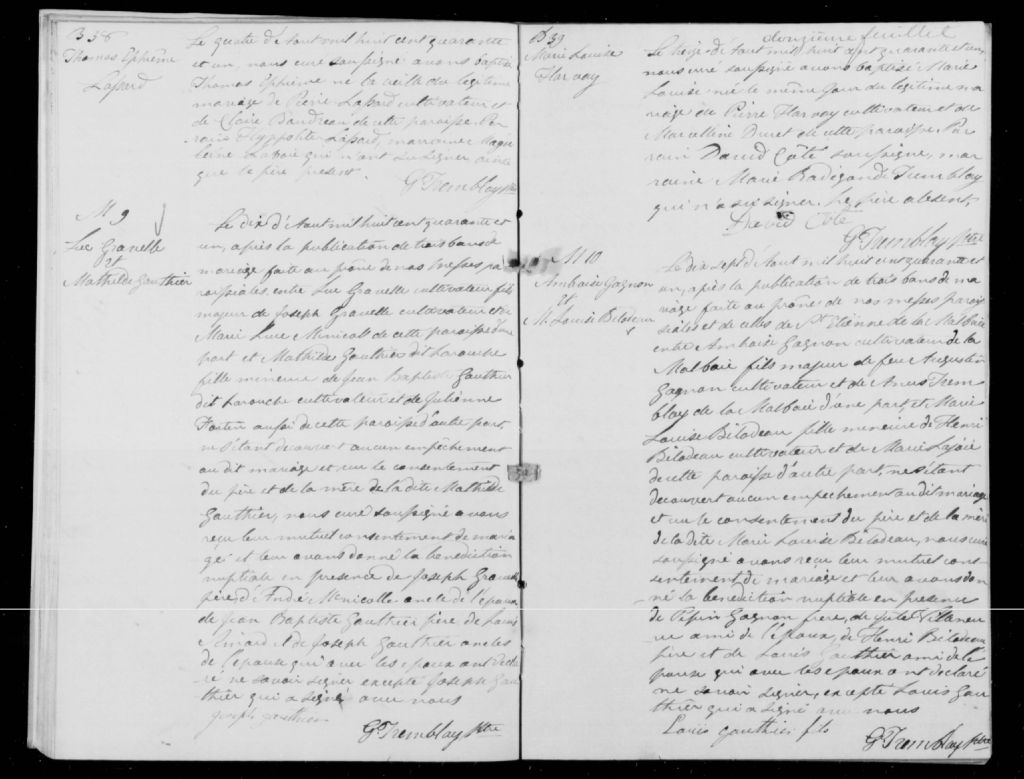 B 38
Thomas Ephreme
Lapard
Le quatre d'Aout mil huit cent quarante
et un, nous curé soussigné avons baptisé
Thomas Ephreme né la veille du legitime
mariage de Pierre Lapard cultivateur et
de Claire Boudreau de cette paroisse. Par
rain Hyppolite Lapard, marraine
Lajoie qui n'ont su signer ainsi
que le père present.
G Tremblay Ptre
M 9
Luc Gravelle
et
Mathilde Gauthier
Le dix d'Aout mil huit cent quarante et
un, après la publication de trois bans de
mariage faite au prône de nos Messes pa
roissiales, entre Luc Gravelle cultivateur fils
majeur de Joseph Gravelle cultivateur et de
Marie Luce Menicoll de cette paroisse d'une
part et Mathilde Gauthier dit Larouche
fille mineure de Jean Baptiste Gauthier
dit Larouche cultivateur et de Julienne
Fortin aussi de cette paroisse d'autre part
ne s'étant decouvert aucun empêchement
au dit mariage et vu le consentement
du père et de la mère de la dite Mathilde
Gauthier, nous curé soussigné avons
reçu leur mutuel consentement de maria
ge et leur avons donné la benediction
nuptiale en presence de Joseph Gravelle
père, d'André Menicolle oncle de l'époux
de Jean Baptiste Gauthier père de Louis
et de Joseph Gauthier oncles
de l'épouse qui avec les epoux ont decla
ré ne savoir signer excepté Joseph Gau
thier qui a signé avec nous
joseph gauthier
G Tremblay Ptre
douzième feuillet
B 39
Marie Louise
Harvay
Le treize d'Aout mil huit cent quarante et un,
nous curé soussigné avons baptisé Marie
Louise née le même jour du legitime ma
riage de Pierre Harvay cultivateur et de
Marcelline Duret de cette paroisse. Par
rain David Côté soussigné, mar
raine Marie Tremblay
qui n'a su signer. Le père absent.
David Côté
G Tremblay Ptre
M 10
Ambroise Gagnon
et
M. Louise Bilodeau
Le dix sept d'Aout mil huit cent quarante et
un, après la publication de trois bans de ma
riage faite au prônes de nos messes parois
siales et de celles de St Etienne de la Malbaie
entre Ambroise Gagnon cultivateur de la
Malbaie fils majeur de feu Augustin
Gagnon cultivateur et de Trem
blay de la Malbaie d'une part, et Marie
Louise Bilodeau fille mineure de Henri
Bilodeau cultivateur et de Marie Lajoie
de cette paroisse d'autre part, ne s'étant
decouvert aucun empechement au dit mariage
et vu le consentement du père et de la mère
de la dite Marie Louise Bilodeau, nous curé
soussigné avons reçu leur mutuel con
sentement de mariage et leur avons don
né la benediction nuptiale en presence
de Pepin Gagnon frere, de Jules Villeneu
ve ami de l'époux, de Henri Bilodeau
père et de Louis Gauthier ami de l'é
pouse qui avec les epoux ont declaré
ne savoir signer, excepté Louis Gau
thier qui a signé avec nous
Louis gauthier fils
G Tremblay Ptre